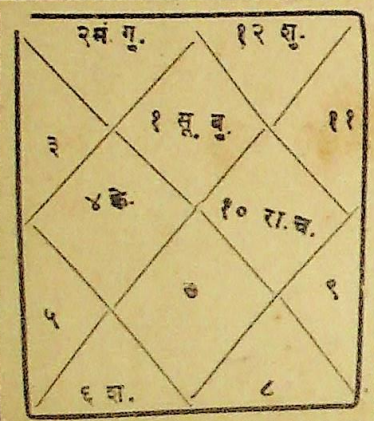 २मं. गु.
१२ शु.
१ सू. बु.
११
३
४ के.
१० रा. च.
७
९
५
६ श.
८